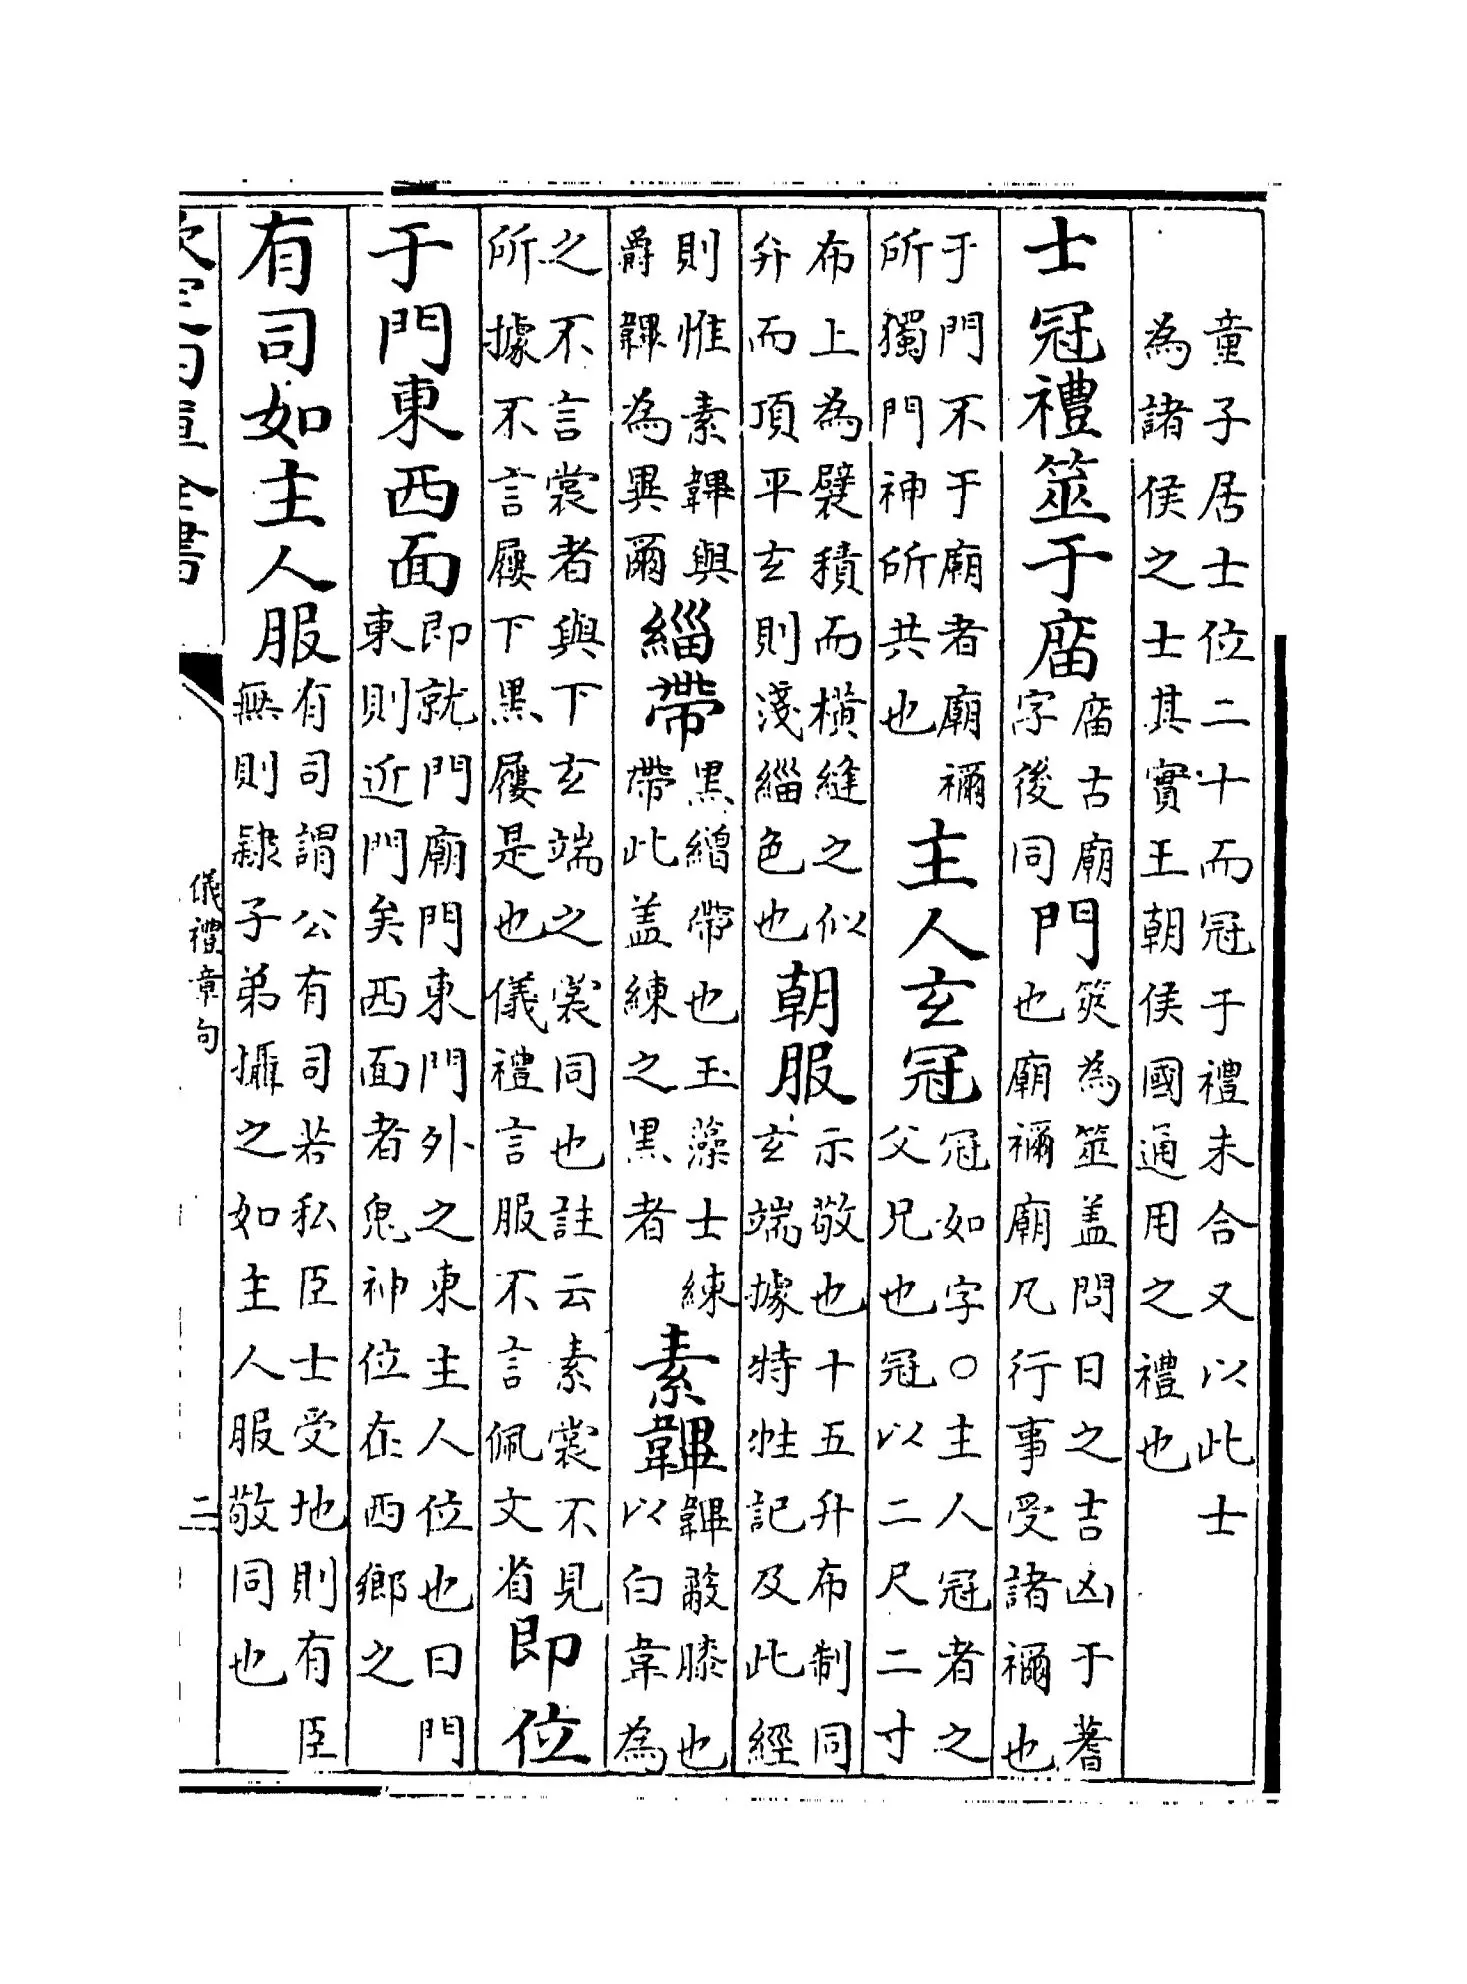 童子居士位二十而冠于禮未合又以此士
為諸侯之士其實王朝侯國通用之禮也
士冠禮筮于庿
庿古廟
字後同
門
筴為筮盖問日之吉凶于蓍
也廟禰廟凡行事受諸禰也
于門不于廟者廟禰
所獨門神所共也
主人玄冠
冠如字○主人冠者之
父兄也冠以二尺二寸
布上為襞積而橫縫之似
升而頂平玄則淺緇色也
朝服
示敬也十五升布制同
玄端據特牲記及此經
則惟素韠與
爵韠為異爾
緇帶
黑繒帶也玉藻士練
帶此盖練之黑者
素韠
韠蔽膝也
以白韋為
之不言裳者與下玄端之裳同也註云素裳不見
所據不言屨下黑屨是也儀禮言服不言佩文省
即位
于門東西面
即就門廟門東門外之東主人位也曰門
東則近門矣西面者鬼神位在西鄉之
有司如主人服
有司謂公有司若私臣士受地則有臣
無則隷子弟攝之如主人服敬同也
儀禮章句
二